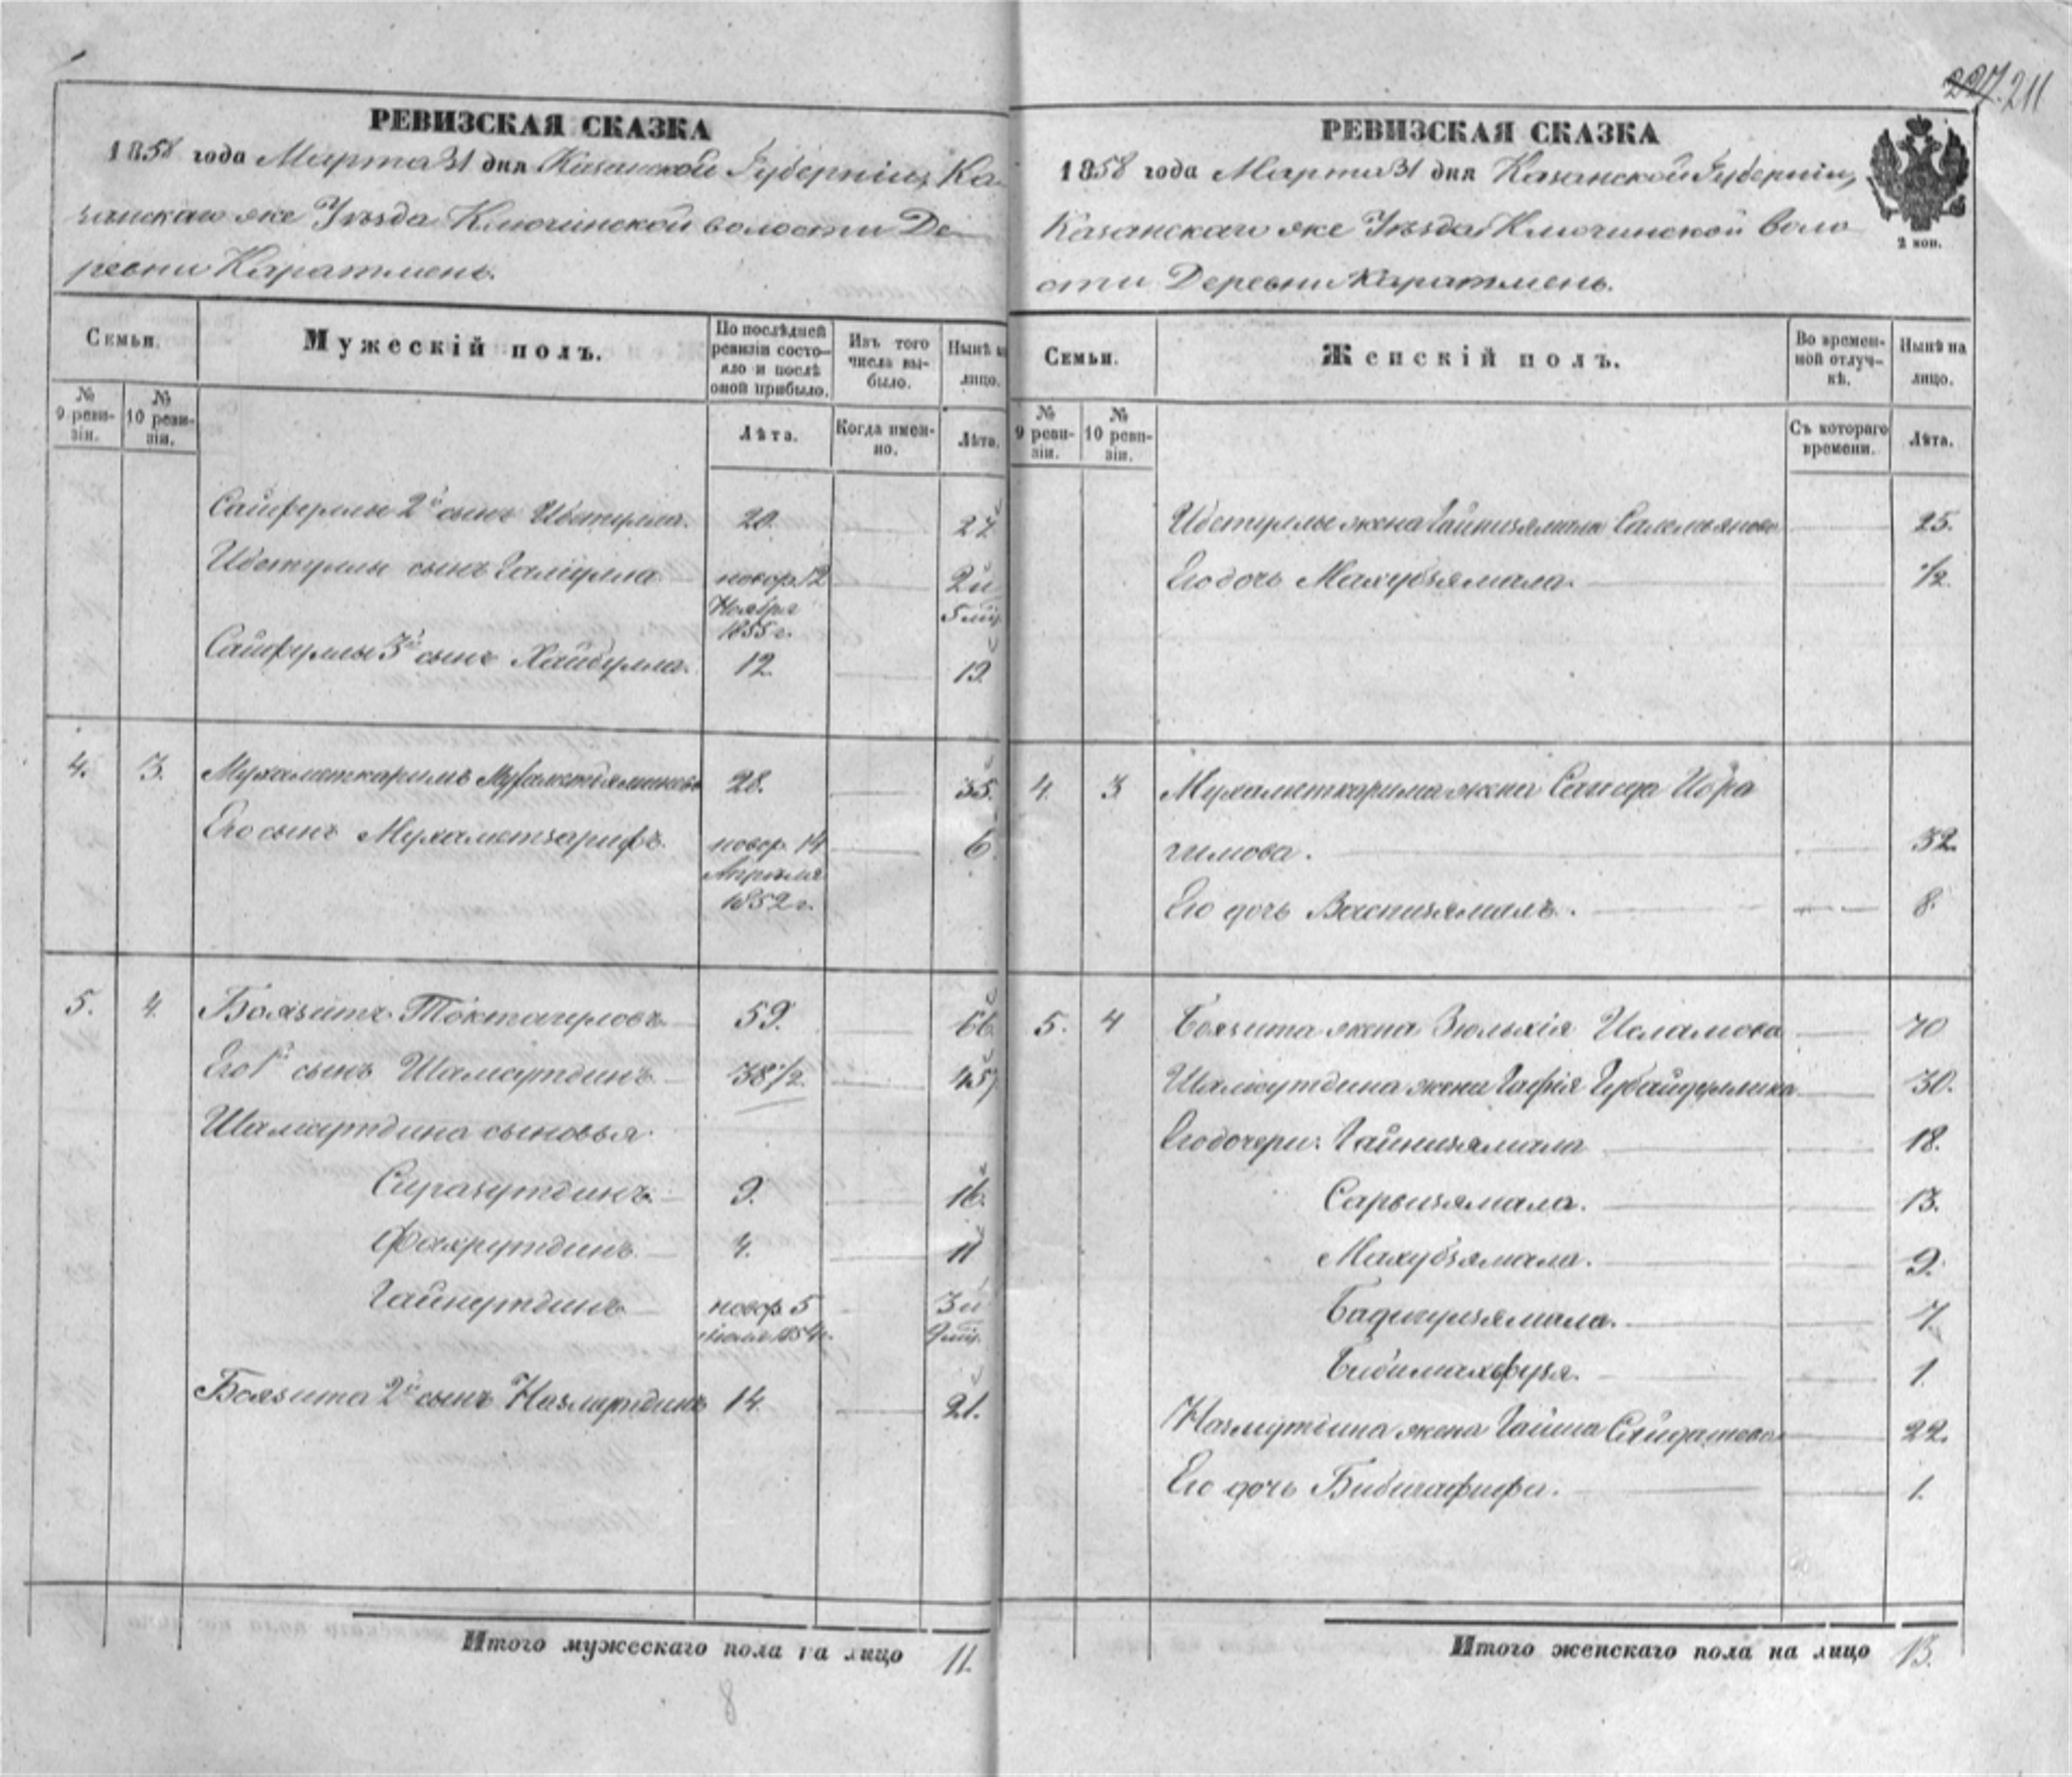 227. 211
РЕВИЗСКАЯ СКАЗКА
1858 года Марта 31 дня Казанской Губерніи, Ка-
занскаго же Уѣзда Ключинской волости Де-
ревни Каратмень.
Семьи.
Мужескій полъ.
По послѣдней ревизіи состо-яло и послѣ оной прибыло.
Изъ того числа вы-было.
Нынѣ на лицо.
№ 9 реви-зіи.
№ 10 реви-зіи.
Лѣта.
Когда имен-но.
Лѣта.
Сайфуллы 2й сынъ Ибетулла. 20. 27
Ибетуллы сынъ Галіулла новор. 12 2 и
Ноября 5 мѣс.
1855 г.
Сайфуллы 3й сынъ Хайбулла. 12. 19.
4. 3. Мухаметкаримъ 28. 35.
Его сынъ Мухаметзарифъ. новор. 14 6.
Апрѣля
1852 г.
5. 4. Боязитъ Токтагуловъ 59. 66.
Его 1й сынъ Шамсутдинъ 38 1/2. 45
Шамсутдина сыновья
Сиразутдинъ 9. 16.
Фахрутдинъ 4. 11
Гайнутдинъ новор. 5 3 и
Іюля 1854 г. 9 мѣс.
Боязита 2й сынъ Назмутдинъ 14. 21.
Итого мужескаго пола на лицо 11.
8
РЕВИЗСКАЯ СКАЗКА
1858 года Марта 31 дня Казанской Губерніи,
Казанскаго же Уѣзда Ключинской воло-
сти Деревни Каратмень.
2 коп.
Семьи.
Женскій полъ.
Во времен-ной отлуч-кѣ.
Нынѣ на лицо.
№ 9 реви-зіи.
№ 10 реви-зіи.
Съ котораго времени.
Лѣта.
Ибетуллы жена Гайнизямала 25.
Его дочь Махубзямала. 1/2.
4. 3 Мухаметкарима жена Саида Ибра
гимова. 32.
Его дочь Васпизямалъ. 8.
5. 4 Боязита жена Зюльхія Исламова 70
Шамсутдина жена Гафія Губайдуллина 30.
Его дочери: Гайнизямала 18.
Сарвизямала. 13.
Махубзямала. 9.
Бадигулзямала. 7.
Бибимахфузя. 1.
Назмутдина жена Гайша Сейдашева 22.
Его дочь Бибигафифа. 1.
Итого женскаго пола на лицо 13.